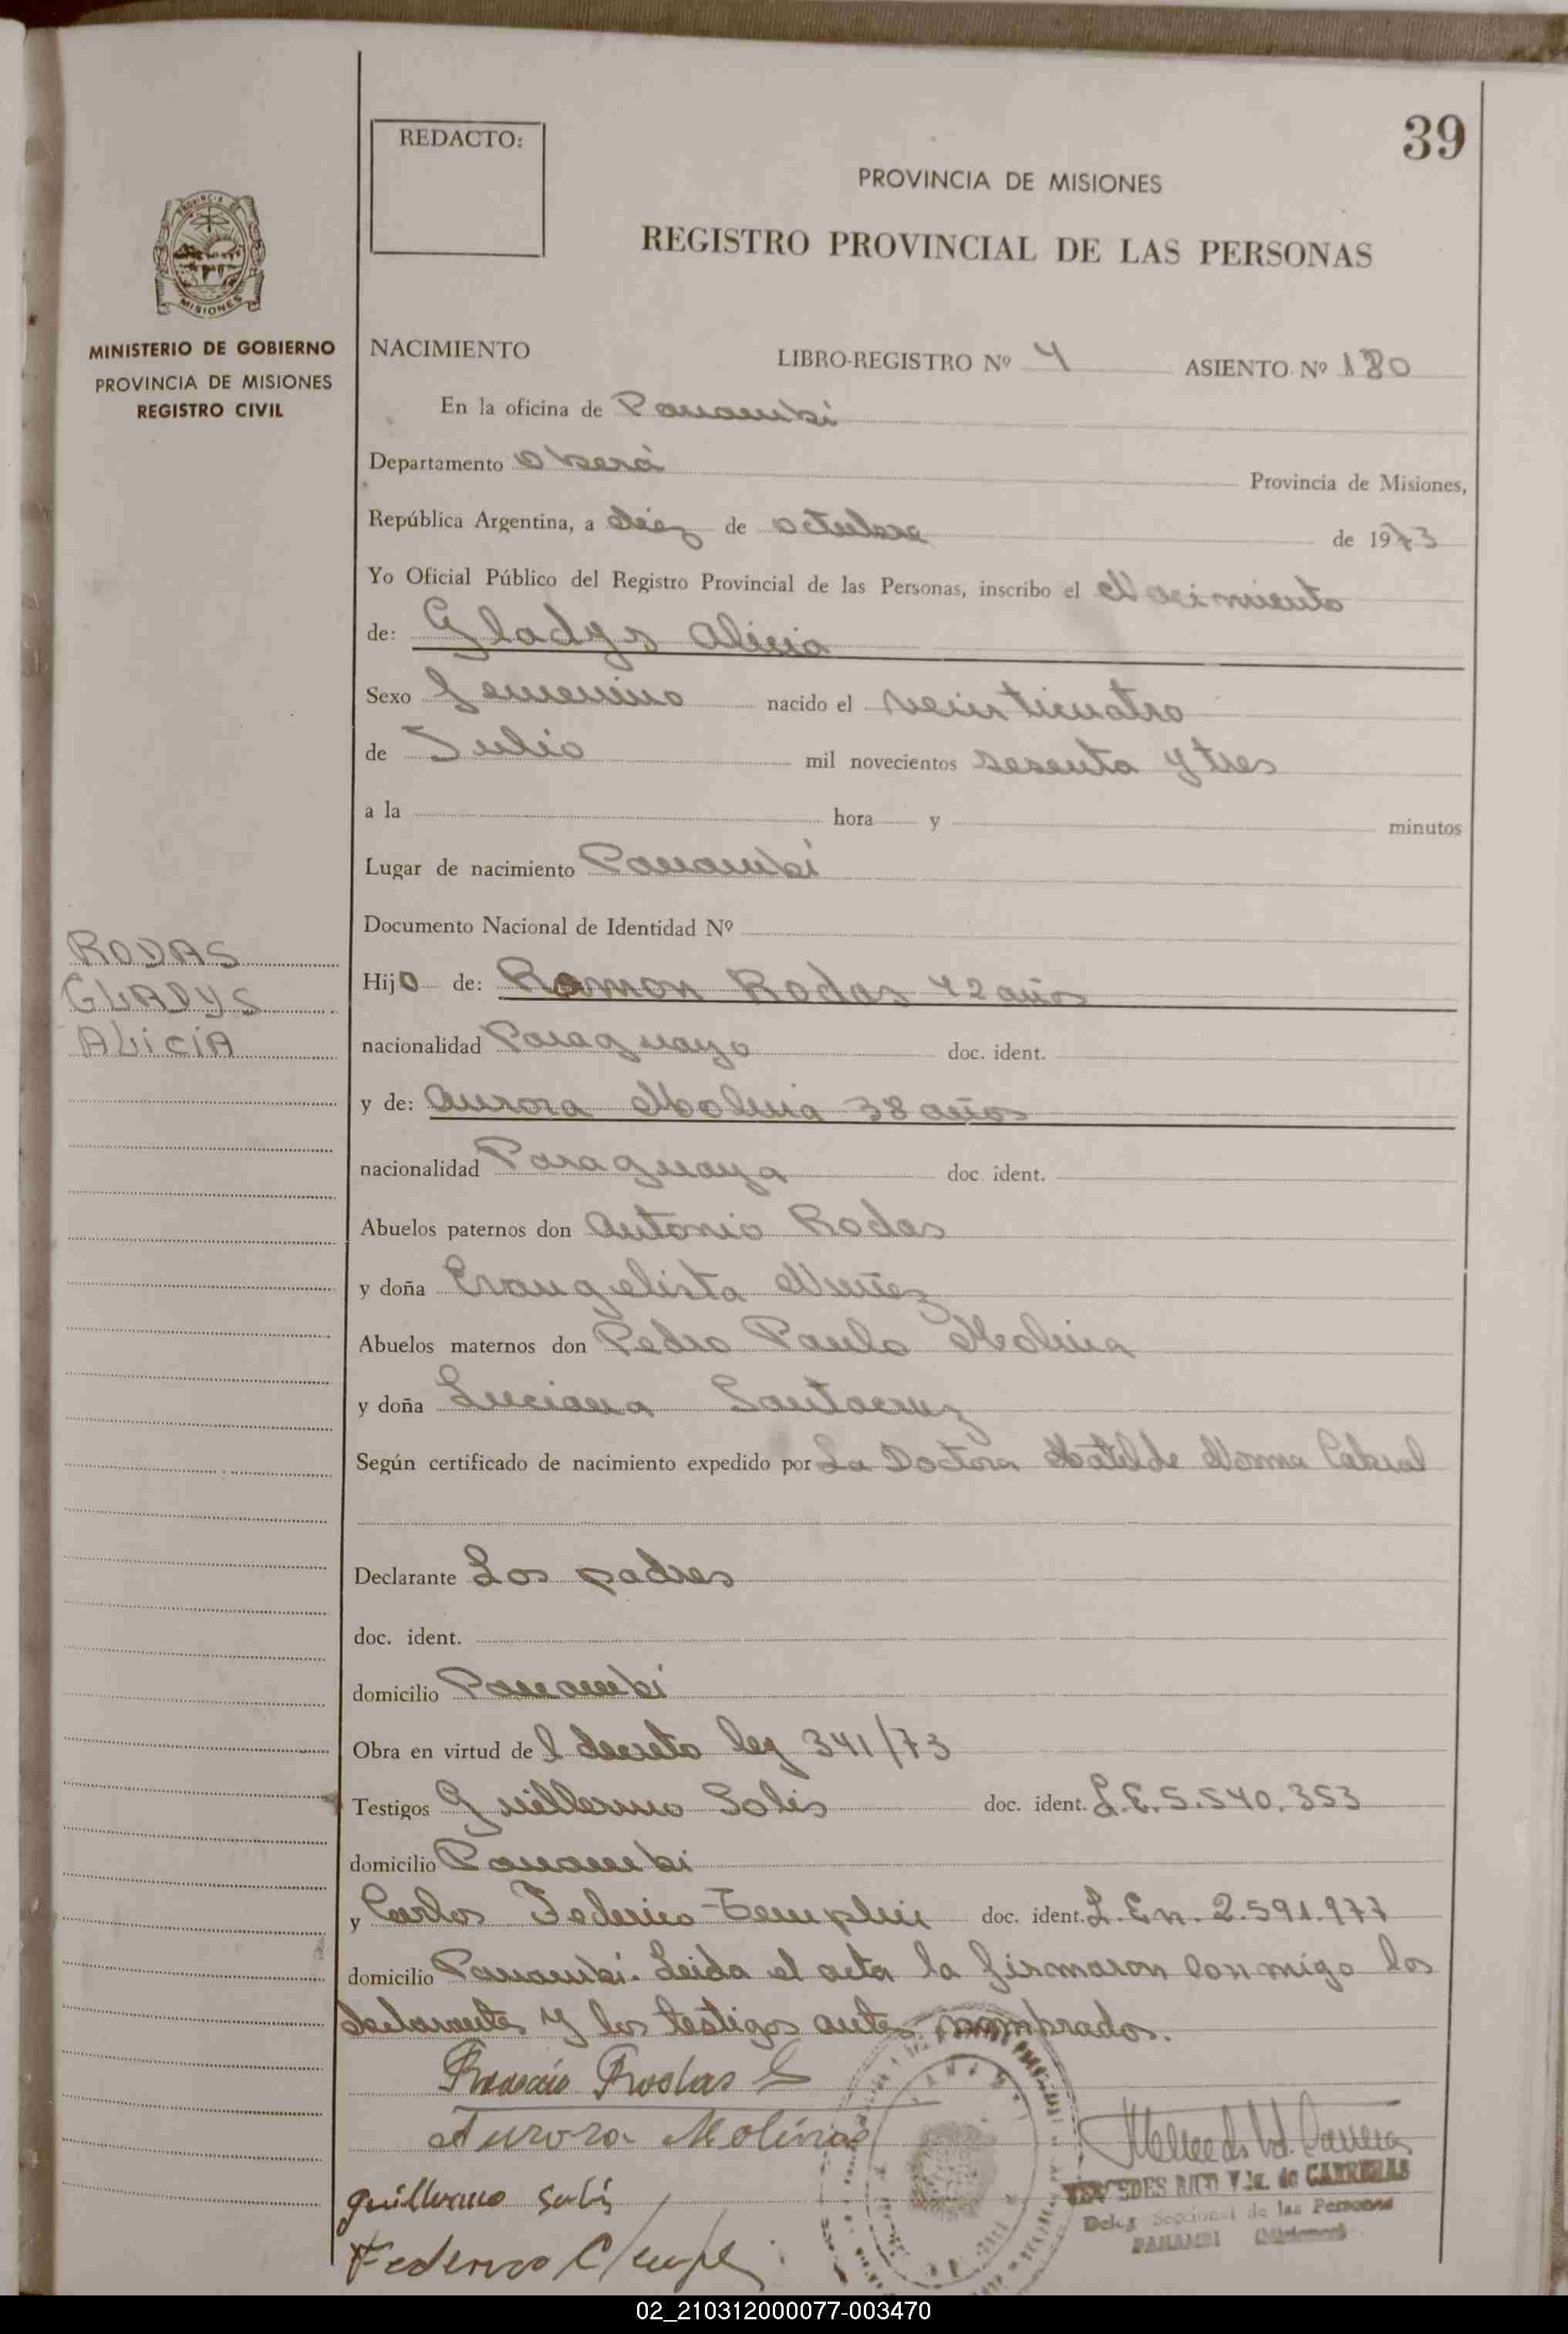 39
REDACTO:
PROVINCIA DE MISIONES
REGISTRO PROVINCIAL DE LAS PERSONAS
PROVINCIA DE
MISIONES
MINISTERIO DE GOBIERNO
PROVINCIA DE MISIONES
REGISTRO CIVIL
NACIMIENTO LIBRO-REGISTRO Nº 4 ASIENTO Nº 180
En la oficina de Panambi
Departamento Oberá Provincia de Misiones,
República Argentina, a diez de octubre de 1973
Yo Oficial Público del Registro Provincial de las Personas, inscribo el Nacimiento
de: Gladys Alicia
Sexo Femenino nacido el veinticuatro
de Julio mil novecientos sesenta y tres
a la hora y minutos
Lugar de nacimiento Panambi
Documento Nacional de Identidad Nº
RODAS
GLADYS
ALICIA
Hijo de: Ramon Rodas 42 años
nacionalidad Paraguayo doc. ident.
y de: Aurora Molina 38 años
nacionalidad Paraguaya doc ident.
Abuelos paternos don Antonio Rodas
y doña Evangelista Nuñez
Abuelos maternos don Pedro Paulo Molina
y doña Luciana Santacruz
Según certificado de nacimiento expedido por La Doctora Matilde Norma Cabral
Declarante Los padres
doc. ident.
domicilio Panambi
Obra en virtud del decreto ley 341/73
Testigos Guillermo Solis doc. ident. L.E. 5.540.353
domicilio Panambi
y Carlos Federico Templin doc. ident. L.E n. 2.591.977
domicilio Panambi. Leida el acta la firmaron conmigo los
declarantes y los testigos antes nombrados.
Rodas
Aurora Molinas
Guillermo Solis
Federico
MERCEDES RICO Vda. de CARRERAS
Deleg Seccional de las Personas
PANAMBI (Misiones)
02_210312000077-003470